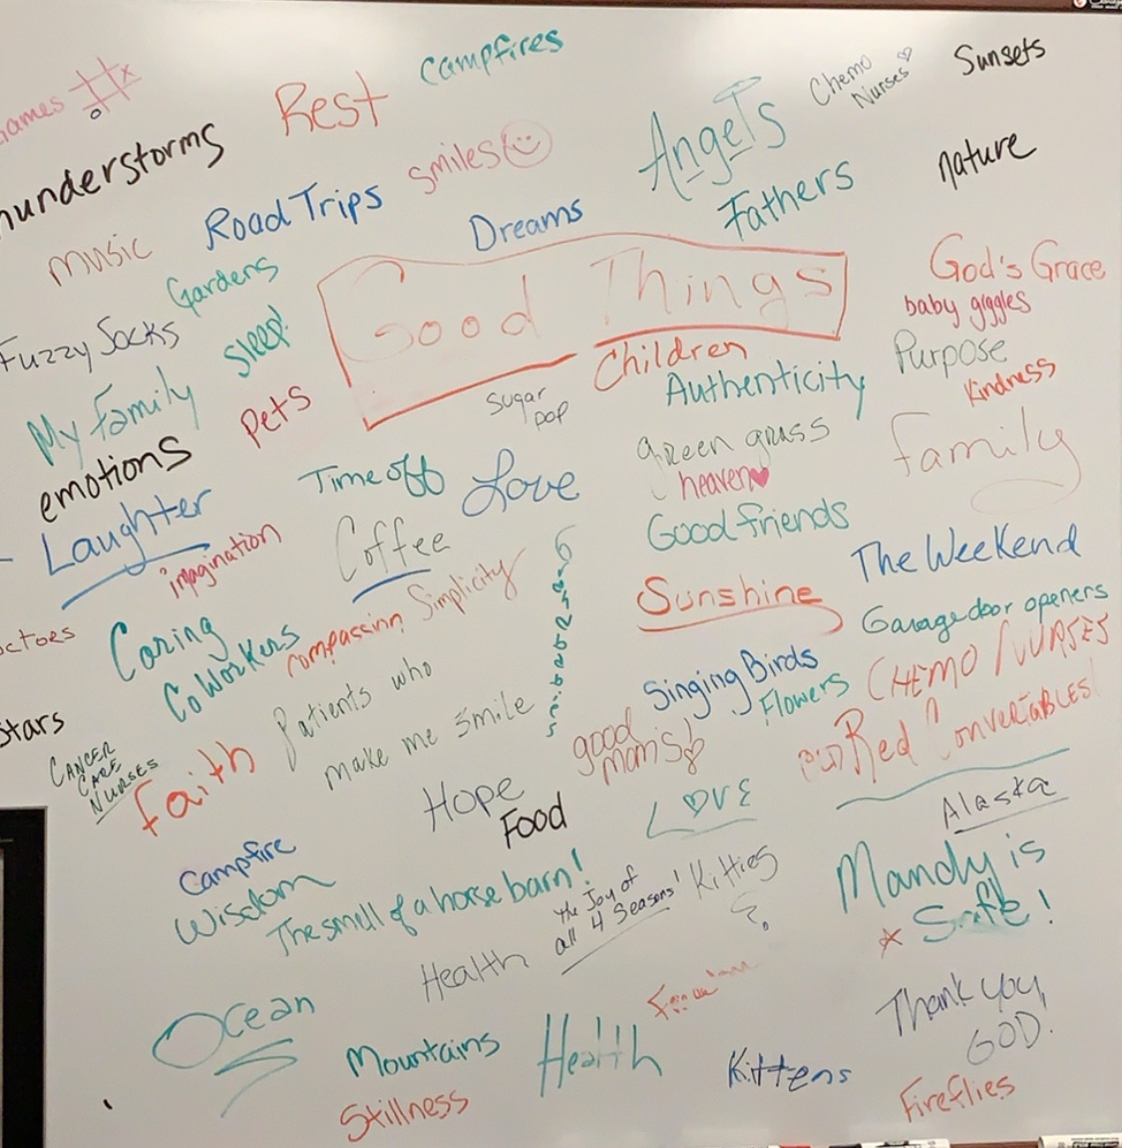 Campfires
Sunsets
Chemo
Nurses
Games
Rest
Angels
hunderstorms
smiles
nature
Fathers
Road Trips
Dreams
music
Gardens
God's Grace
Good Things
baby giggles
Fuzzy Socks
Sleep!
Children
Purpose
My Family
Pets
Sugar
pop
Authenticity
Kindness
emotions
green grass
family
Time off
Love
heaven
Laughter
Coffee
Good friends
imagination
The Weekend
Simplicity
Sunshine
Garage door openers
ctoes
Caring
CoWorkers
compassion
CHEMO NURSES
Singing Birds
Flowers
Patients who
make me smile
Stars
good
moms!
Red Convertables!
CANCER
CARE
NURSES
Faith
Hope
Food
LOVE
Alaska
Campfire
Wisdom
The smell of a horse barn!
the Joy of
all 4 Seasons!
Kitties
Mandy is
Safe!
Health
Ocean
Thank you,
GOD!
Mountains
Health
Kittens
Stillness
Fireflies